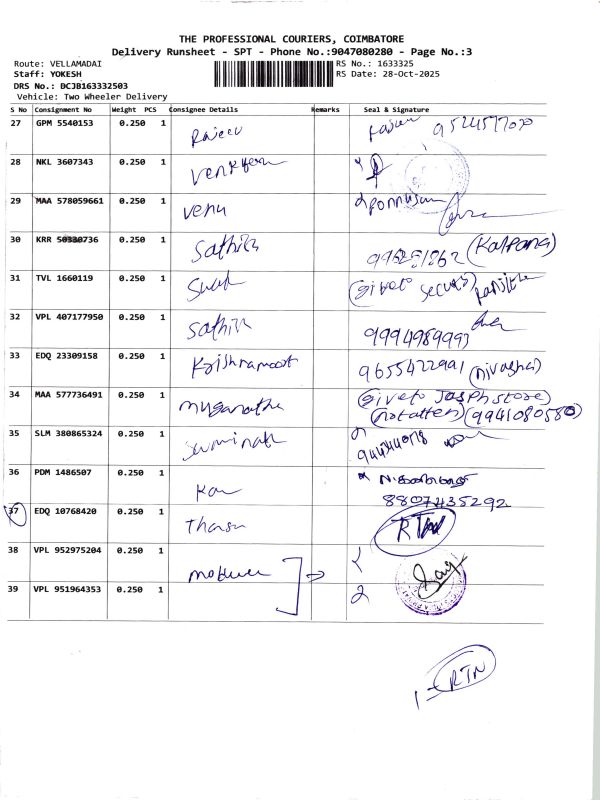 THE PROFESSIONAL COURIERS, COIMBATORE
Delivery Runsheet - SPT - Phone No.:9047080280 - Page No.:3
Route: VELLAMADAI RS No.: 1633325
Staff: YOKESH RS Date: 28-Oct-2025
DRS No.: DCJB163332503
Vehicle: Two Wheeler Delivery
S No Consignment No Weight PCS Consignee Details Remarks Seal & Signature
27 GPM 5540153 0.250 1 Rajeev
28 NKL 3607343 0.250 1
29 MAA 578059661 0.250 1 venu
30 KRR 0.250 1 Sathish (Kalpana)
31 TVL 1660119 0.250 1 (giveto
32 VPL 407177950 0.250 1 Sathish 9994989993
33 EDQ 23309158 0.250 1 Krishnamoot 9655422991
34 MAA 577736491 0.250 1 (giveto store)
(9941080580)
35 SLM 380865324 0.250 1
36 PDM 1486507 0.250 1
8807435292
37 EDQ 10768420 0.250 1 RTN
38 VPL 952975204 0.250 1 1
39 VPL 951964353 0.250 1 2
1 = RTN